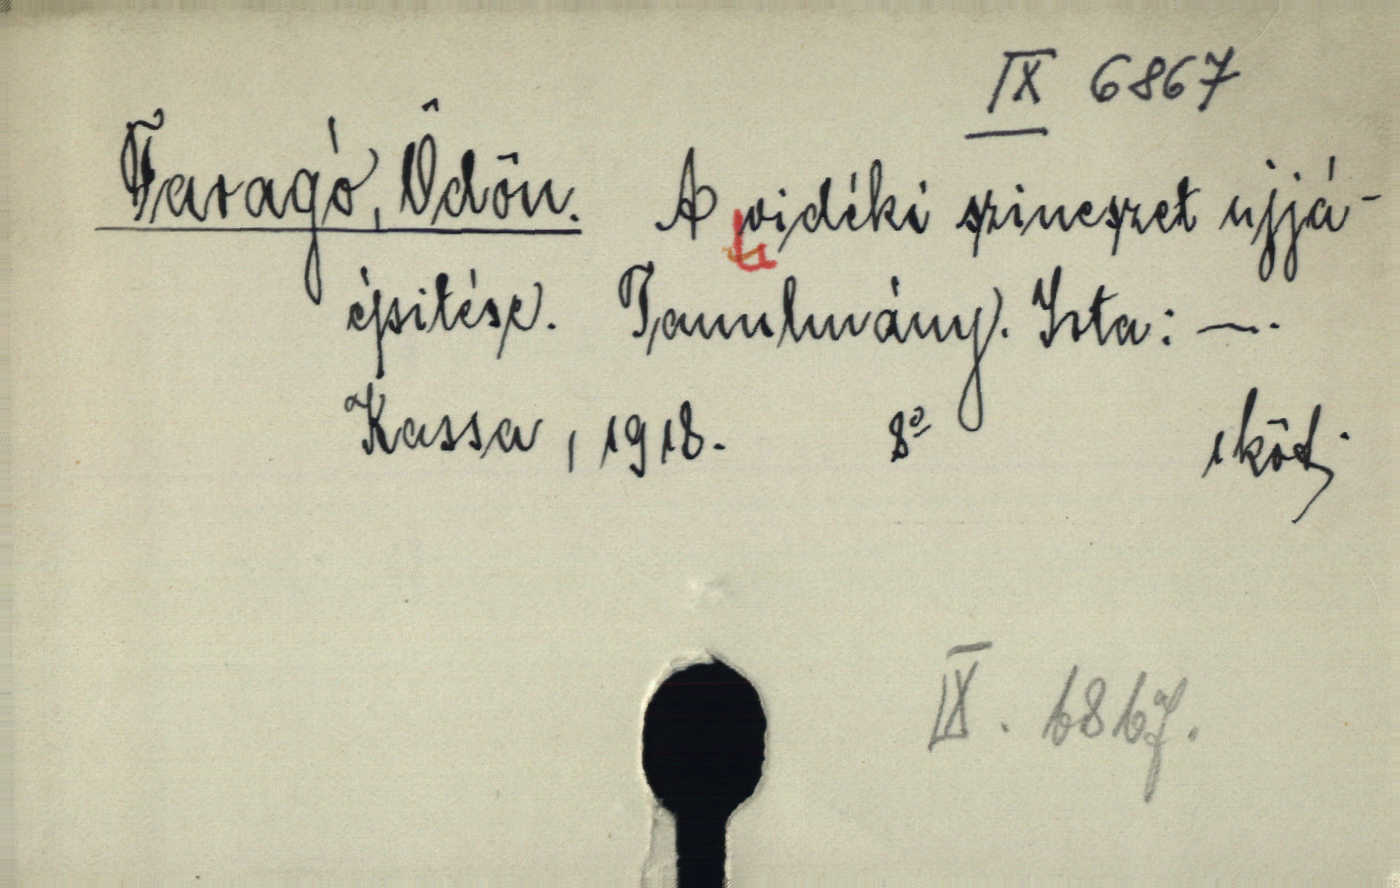 IX 6867
Faragó, Ödön. A vidéki szineszet ujjá-
épitése. Tanulmány. Irta: —.
Kassa, 1918. 8° 1 köt.
IX. 6867.